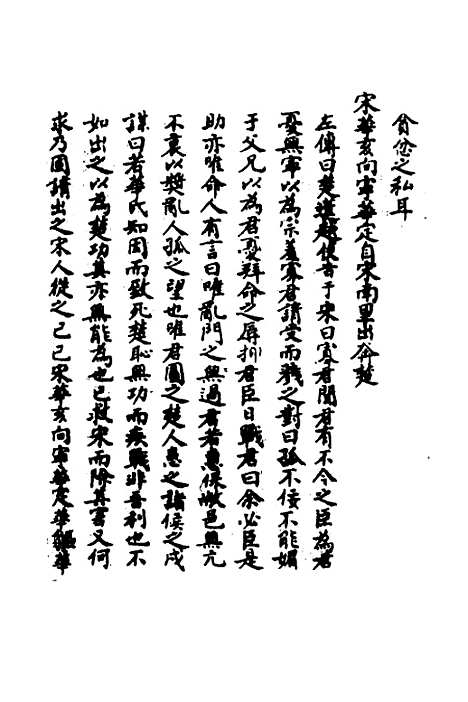 貪忿之私耳
宋華亥向寧華定自宋南里出奔楚
左傳曰楚薳越使告于宋曰寡君聞君有不令之臣為君
憂無寧以為宗羞寡君請受而戮之對曰孤不佞不能媚
于父兄以為君憂拜命之辱抑君臣日戰君曰余必臣是
助亦唯命人有言曰唯亂門之無過君若惠保敝邑無亢
不衷以奬亂人孤之望也唯君圖之楚人患之諸侯之戍
謀曰若華氏知困而致死楚恥無功而疾戰非吾利也不
如出之以為楚功其亦無能為也已救宋而除其害又何
求乃固請出之宋人從之己巳宋華亥向寧華定華貙華